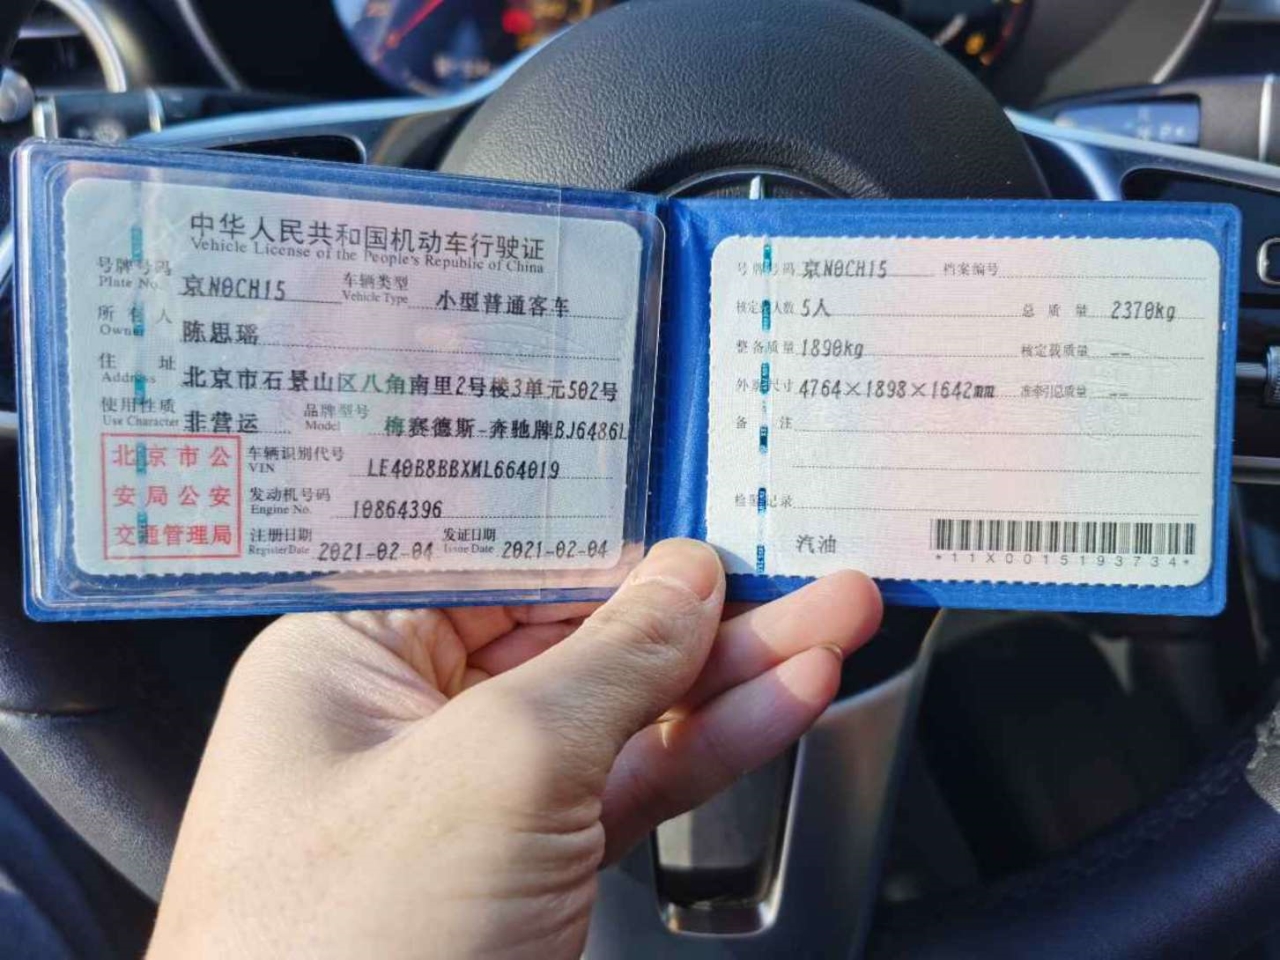 中华人民共和国机动车行驶证
Vehicle License of the People's Republic of China
号牌号码 京N0CH15 车辆类型 小型普通客车
Plate No. Vehicle Type
所有人 陈思瑶
Owner
住址 北京市石景山区八角南里2号楼3单元502号
Address
使用性质 非营运 品牌型号 梅赛德斯-奔驰牌BJ6486L
Use Character Model
北京市公
安局公安
交通管理局
车辆识别代号 LE40B8BBXML664019
VIN
发动机号码 10864396
Engine No.
注册日期 2021-02-04 发证日期 2021-02-04
Register Date Issue Date
号牌号码 京N0CH15 档案编号
核定载人数 5人 总质量 2370kg
整备质量 1890kg 核定载质量 --
外廓尺寸 4764×1898×1642mm 准牵引总质量 --
备注
检验记录
汽油
*11X0015193734*